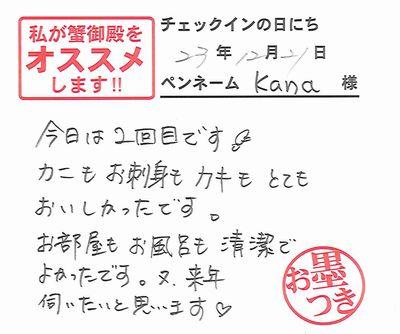 私が蟹御殿を
オススメ
します!!
チェックインの日にち
23年12月21日
ペンネーム Kana 様
今日は2回目です
カニもお刺身もカキもとても
おいしかったです。
お部屋もお風呂も清潔で
よかったです。又、来年
伺いたいと思います♡
お墨つき